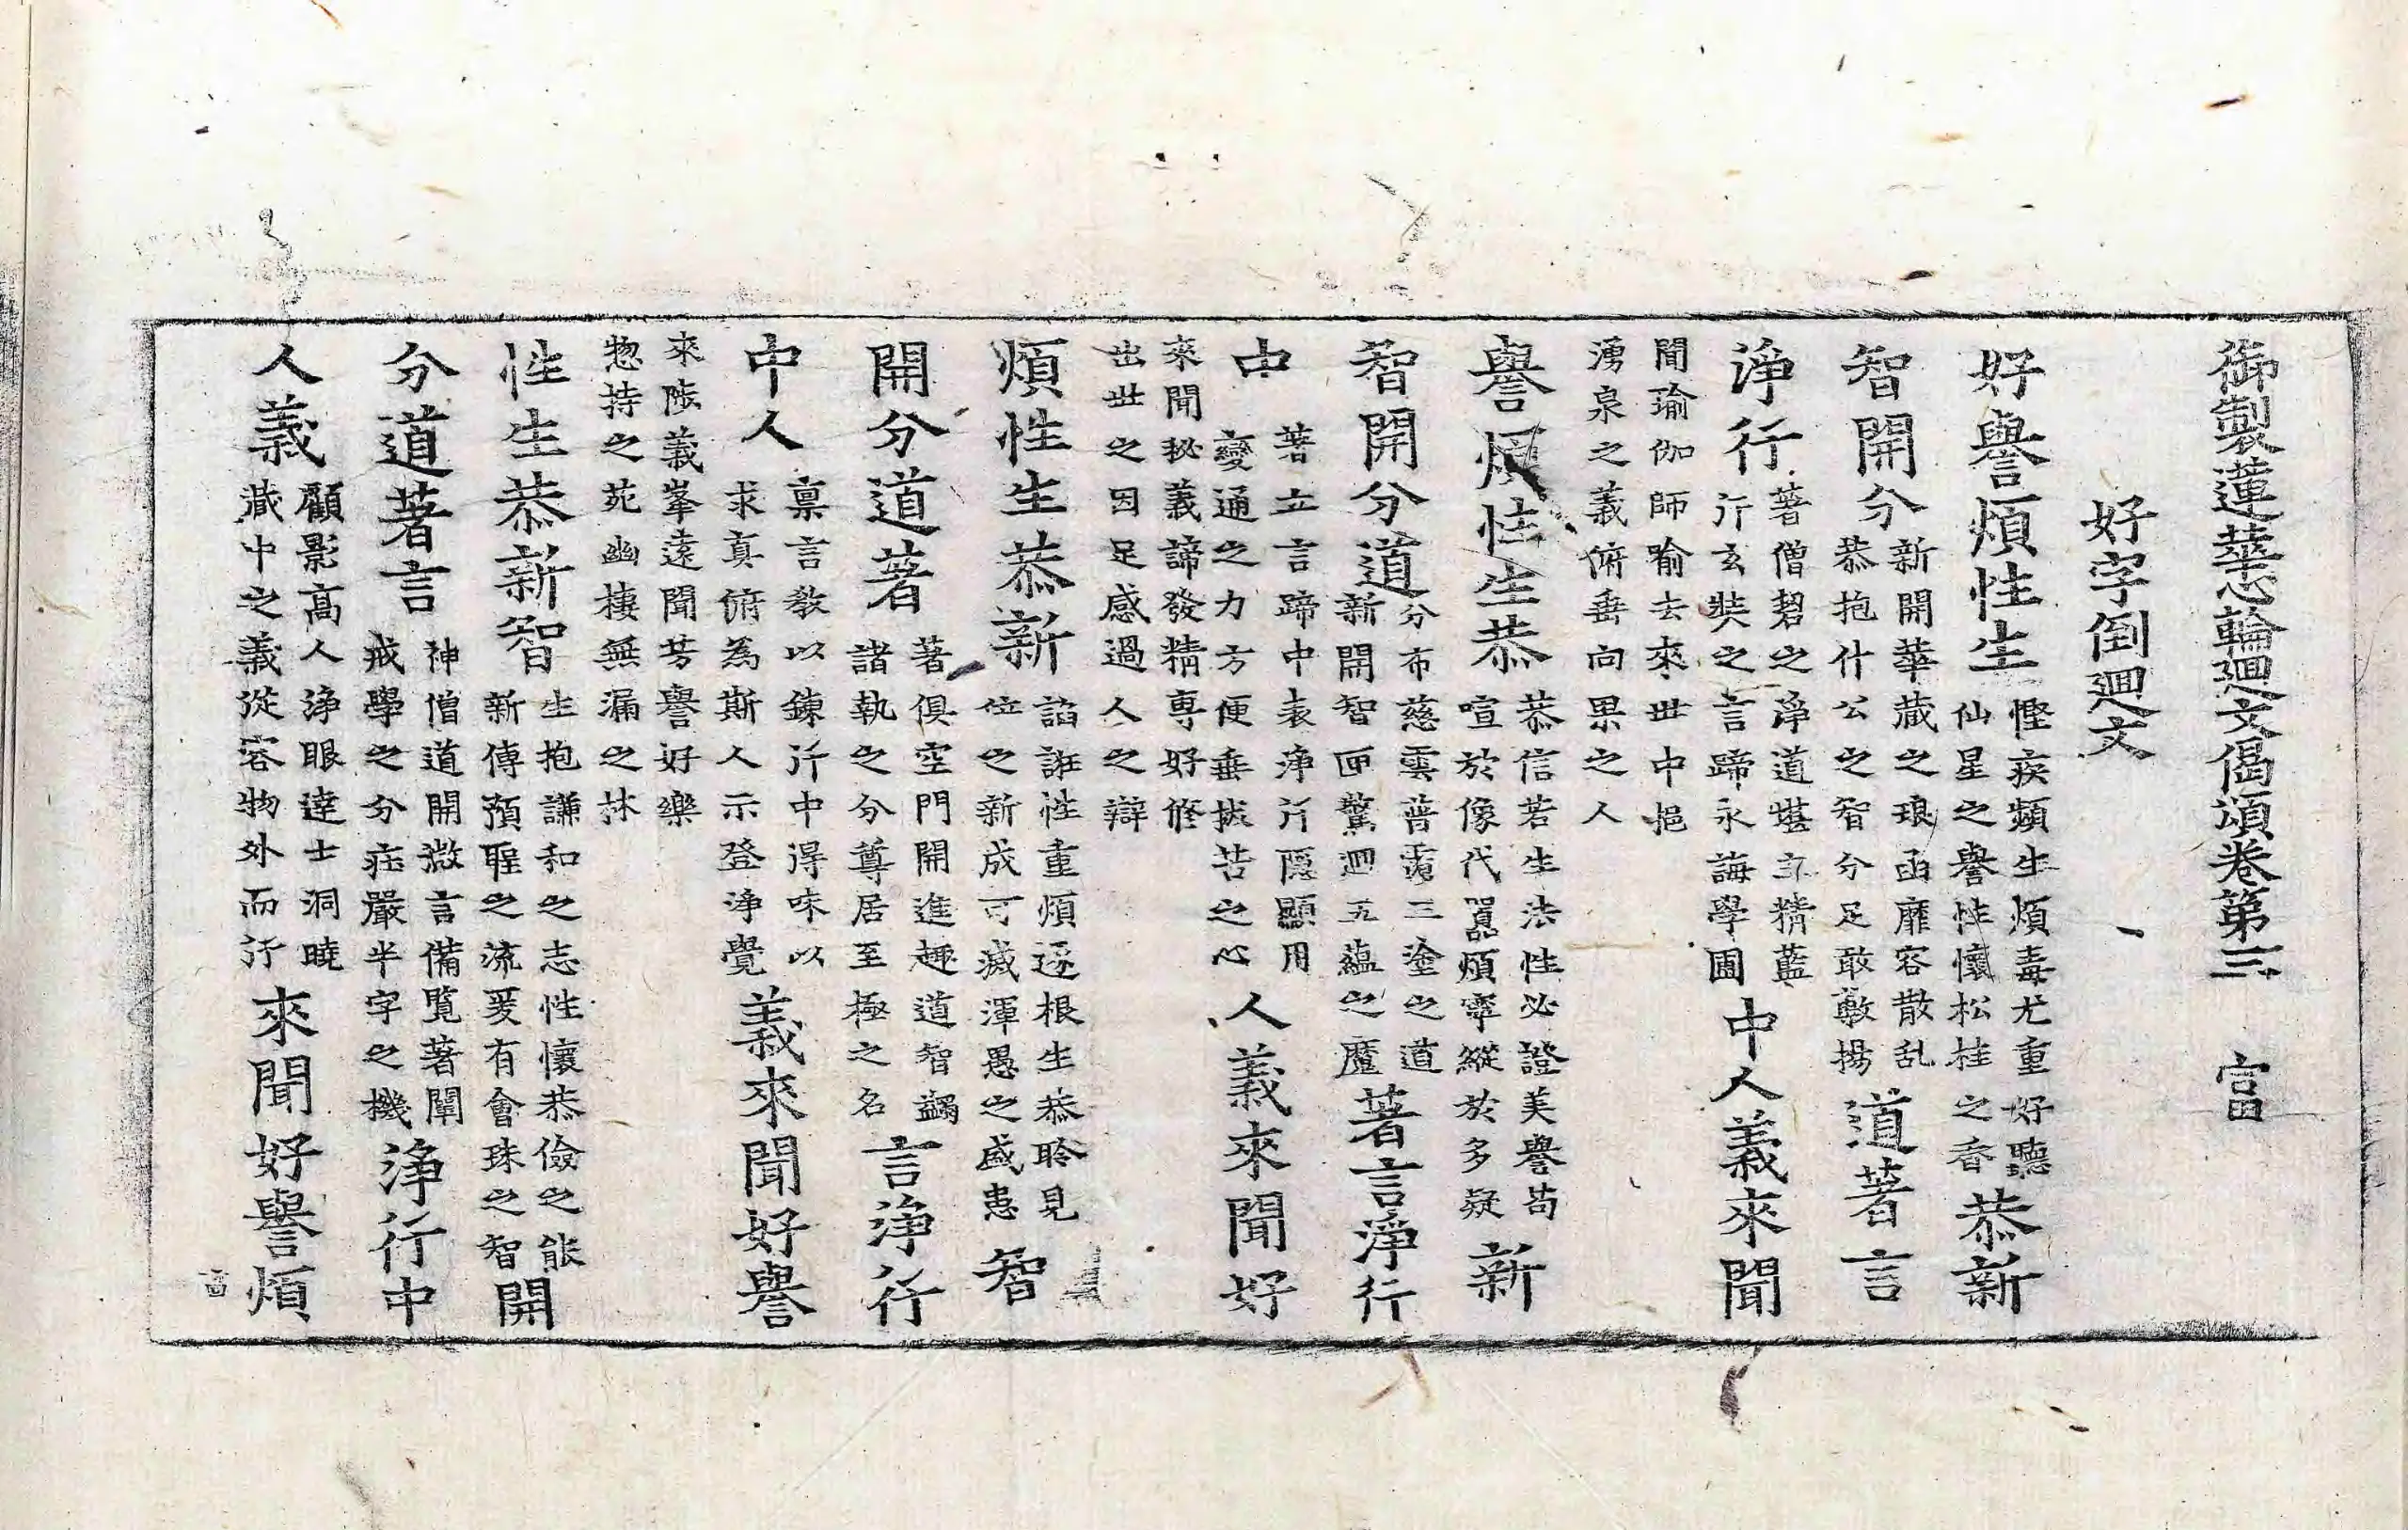 御製蓮華心輪迴文偈頌卷第三 富
好字倒迴文
好譽煩性生
慳疾頻生煩毒尤重好聽
仙星之譽性懷松桂之香
恭新
智開分
新開華藏之琅函靡容散乱
恭抱什公之智分足敢敭揚
道著言
淨行
著僧䂮之淨道堪立精藍
行玄奘之言蹄永誨學圃
中人義來聞
聞瑜伽師喻去來世中挹
湧泉之義俯垂向果之人
譽煩性生恭
恭信若生法性必證美譽苟
喧於像代囂煩寧縱於多疑
新
智開分道
分布慈雲普霑三塗之道
新開智匣驚迴五蘊之魔
著言淨行
中
著立言蹄中表淨行隱顯用
變通之力方便垂拔苦之心
人義來聞好
來聞秘義諦發精專好修
出世之因足感過人之辯
煩性生恭新
諂誑性重煩逐根生恭聆見
位之新成可滅渾愚之盛恚
智
開分道著
著俱空門開進趣道智蠲
諸執之分尊居至極之名
言淨行
中人
禀言教以鍊行中得味以
求真俯為斯人示登淨覺
義來聞好譽
來陟義峯遠聞芳譽好樂
惣持之苑幽棲無漏之林
性生恭新智
生抱謙和之志性懷恭儉之能
新傳預聖之流爰有會珠之智
開
分道著言
神僧道開微言備覧著闡
戒學之分莊嚴半字之機
淨行中
人義
顧影高人淨眼達士洞曉
藏中之義從容物外而行
來聞好譽煩
富